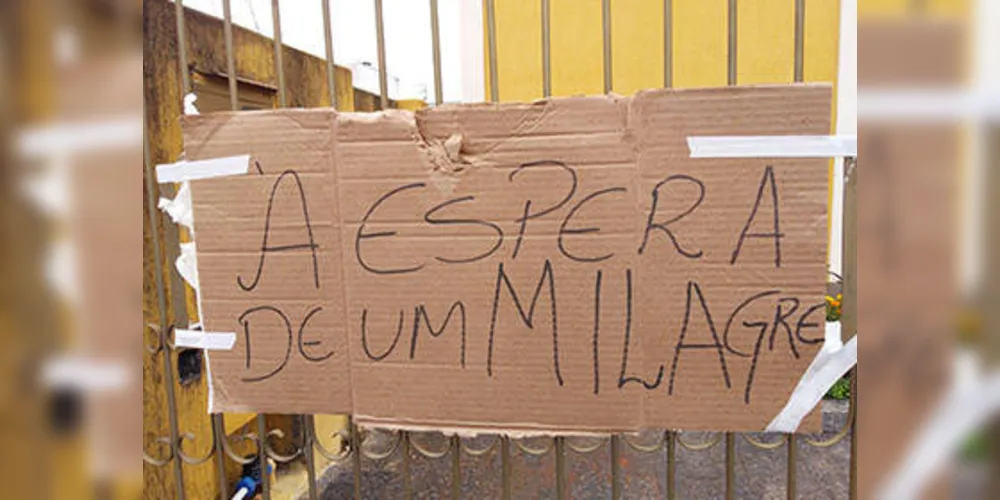 À ESPERA
DE UM MILAGRE